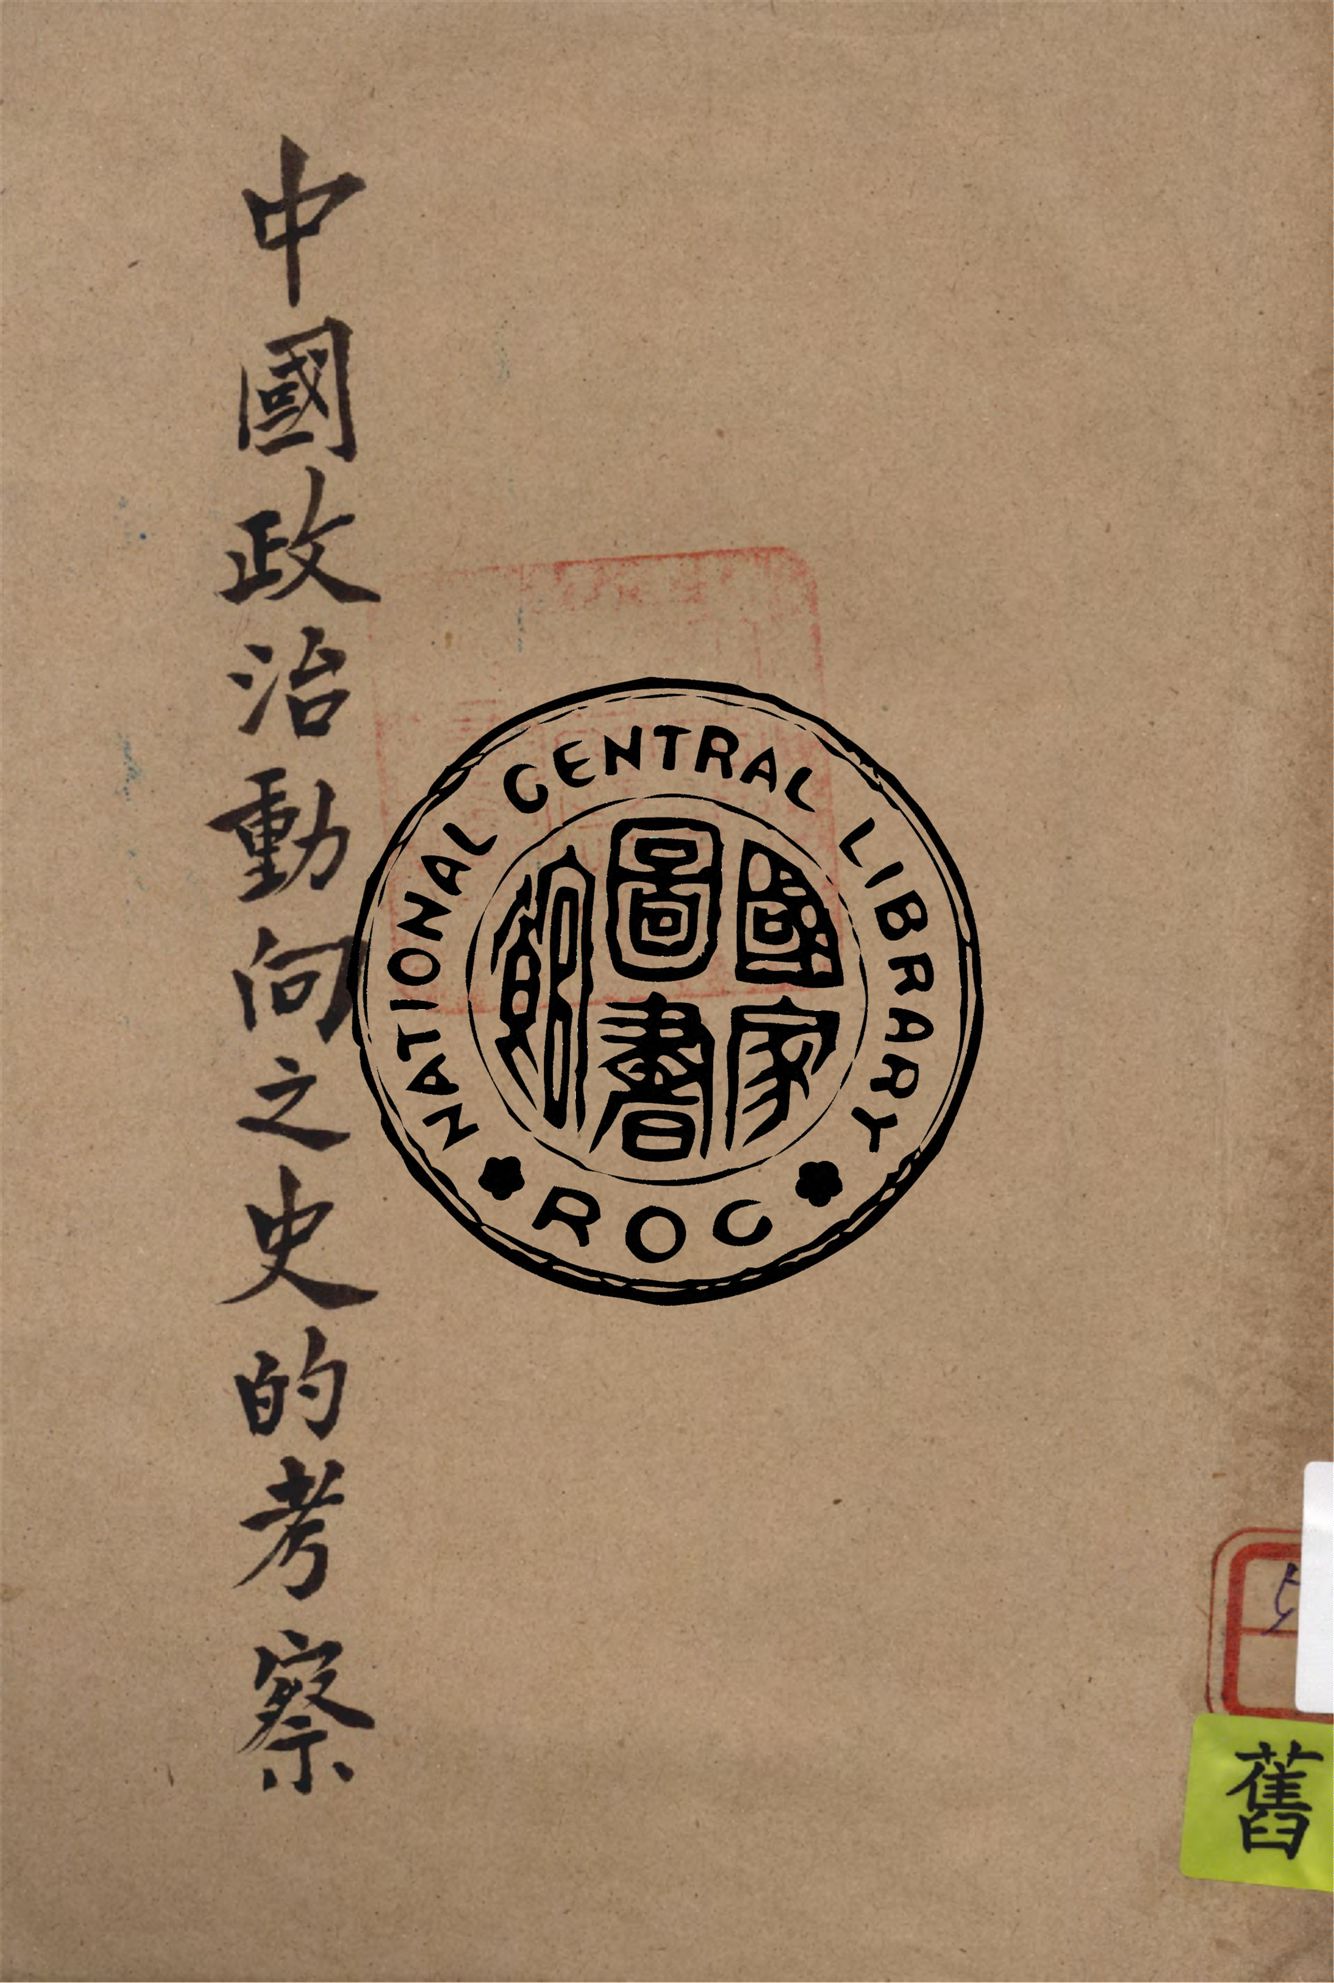 中國政治動向之史的考察
NATIONAL CENTRAL LIBRARY
國家
圖書
館
ROC
舊